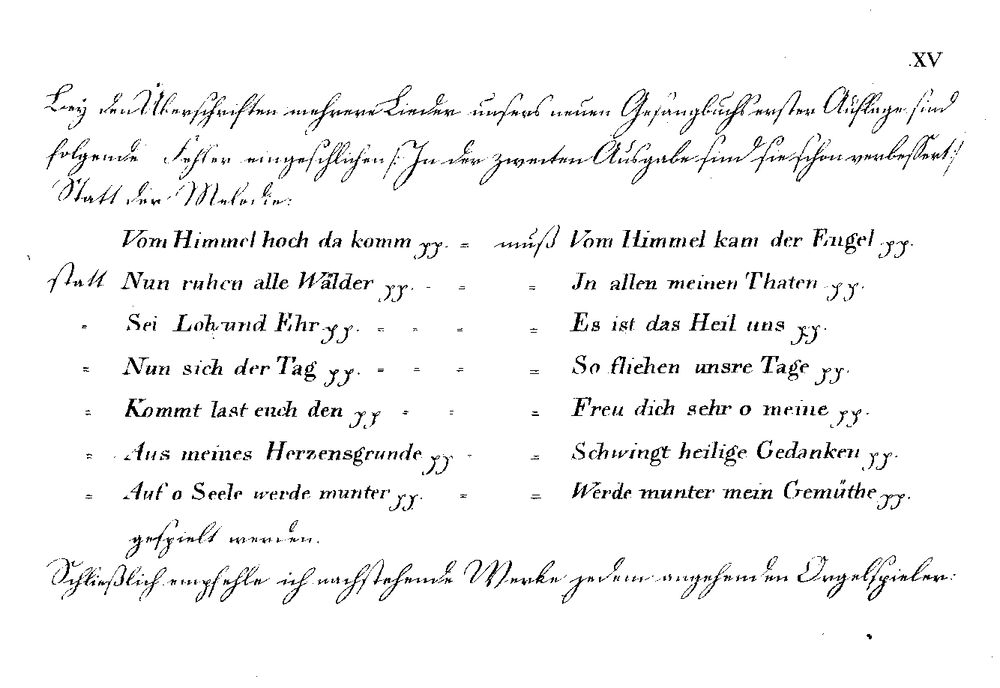 XV
Bey den Überschriften mehrere Lieder unsers neuen Gesangbuchs erster Auflage sind
folgende Fehler eingeschlichen /: In der zweiten Ausgabe sind sie schon verbessert :/
Statt der Melodie:
Vom Himmel hoch da komm pp. = muß Vom Himmel kam der Engel pp.
statt Nun ruhen alle Wälder pp. - = = In allen meinen Thaten pp.
= Sei Lob und Ehr pp. = = = = Es ist das Heil uns pp.
= Nun sich der Tag pp. = = = = So fliehen unsre Tage pp.
= Kommt last euch den pp = = = Freu dich sehr o meine pp.
= Aus meines Herzensgrunde pp - = Schwingt heilige Gedanken pp.
= Auf o Seele werde munter pp. = = Werde munter mein Gemüthe pp.
gespielt werden.
Schließlich empfehle ich nachstehende Werke jedem angehenden Orgelspieler: